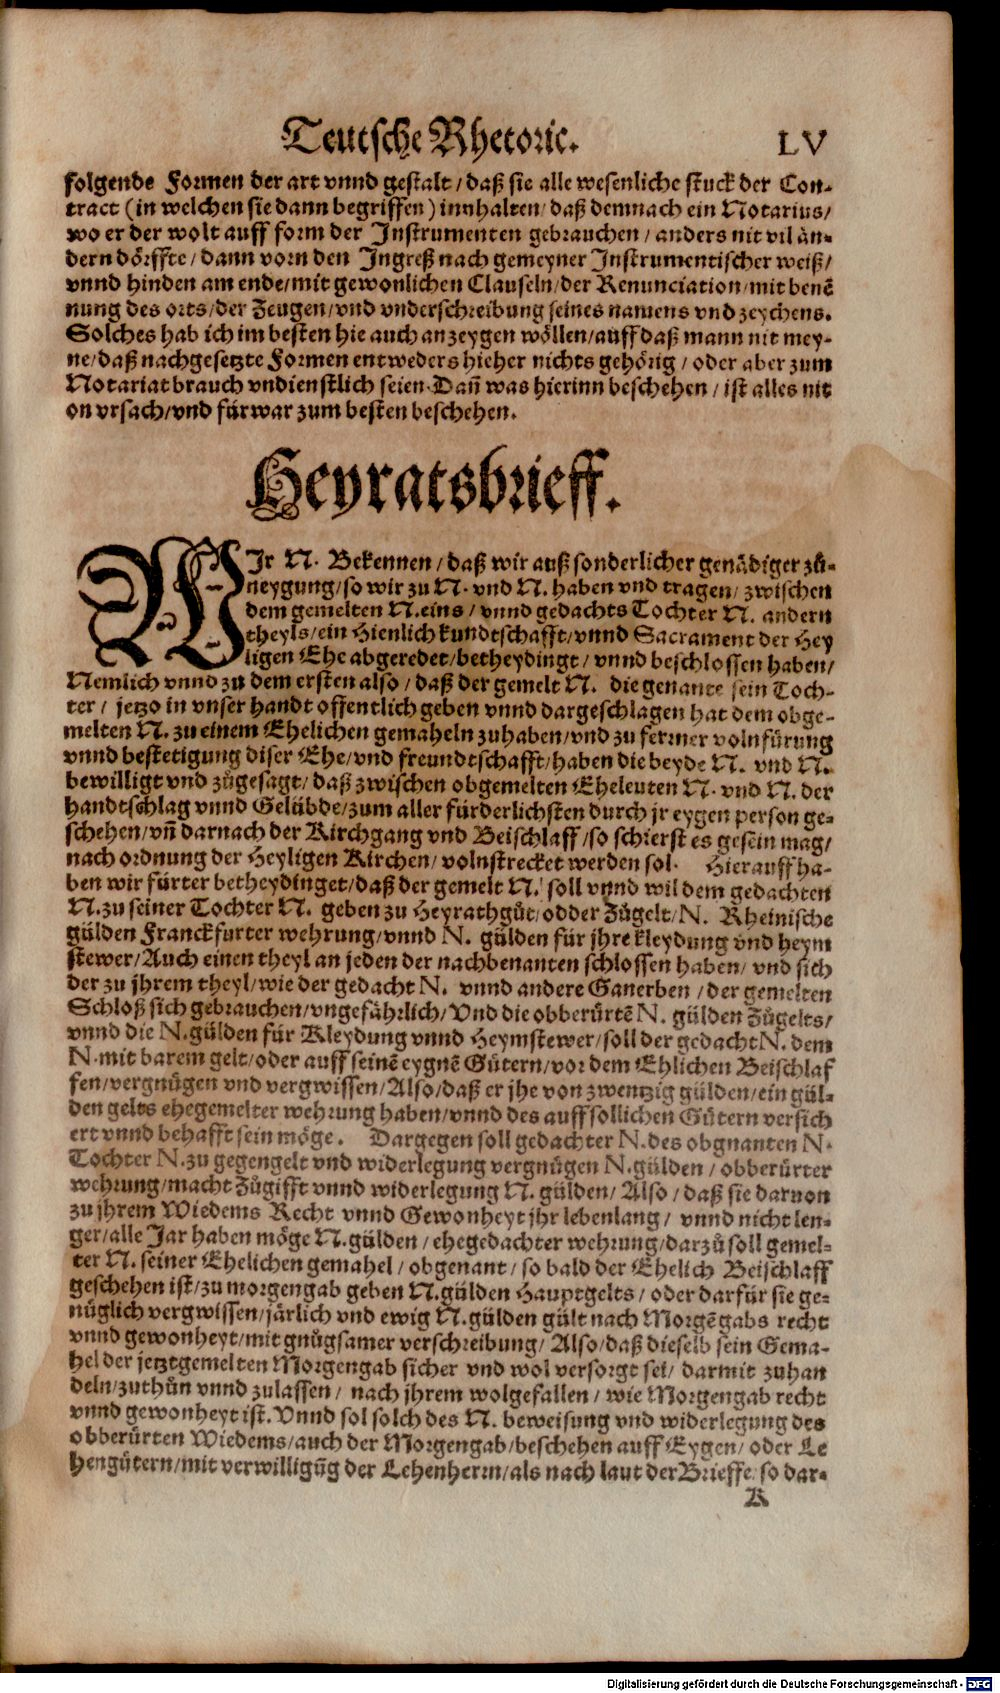 Teutsche Rhetoric. LV
folgende Formen der art vnnd gestalt / daß sie alle wesenliche stuck der Con-
tract (in welchen sie dann begriffen) innhalten / daß demnach ein Notarius /
wo er der wolt auff form der Instrumenten gebrauchen / anders nit vil än-
dern dörffte / dann vorn den Ingreß nach gemeyner Instrumentischer weiß /
vnnd hinden am ende / mit gewonlichen Clauseln / der Renunciation / mit benē
nung des orts / der Zeugen / vnd vnderschreibung seines namens vnd zeychens.
Solches hab ich im besten hie auch anzeygen wöllen / auff daß mann nit mey-
ne / daß nachgesetzte Formen entweders hieher nichts gehörig / oder aber zum
Notariat brauch vndienstlich seien. Dañ was hierinn beschehen / ist alles nit
on vrsach / vnd fürwar zum besten beschehen.
Heyratsbrieff.
WJr N. Bekennen / daß wir auß sonderlicher genädiger zů-
neygung / so wir zu N. vnd N. haben vnd tragen / zwischen
dem gemelten N. eins / vnnd gedachts Tochter N. andern
theyls / ein Hienlich kundtschafft / vnnd Sacrament der Hey
ligen Ehe abgeredet / betheydingt / vnnd beschlossen haben /
Nemlich vnnd zu dem ersten also / daß der gemelt N. die genante sein Toch-
ter / jetzo in vnser handt offentlich geben vnnd dargeschlagen hat dem obge-
melten N. zu einem Ehelichen gemaheln zuhaben / vnd zu ferrner volnfürung
vnnd bestetigung diser Ehe / vnd freundtschafft / haben die beyde N. vnd N.
bewilligt vnd zůgesagt / daß zwischen obgemelten Eheleuten N. vnd N. der
handtschlag vnnd Gelübde / zum aller fürderlichsten durch jr eygen person ge-
schehen / vñ darnach der Kirchgang vnd Beischlaff / so schierst es gesein mag /
nach ordnung der Heyligen Kirchen / volnstrecket werden sol. Hierauff ha-
ben wir fürter betheydinget / daß der gemelt N. soll vnnd wil dem gedachten
N. zu seiner Tochter N. geben zu Heyrathgůt / odder Zůgelt / N. Rheinische
gülden Franckfurter wehrung / vnnd N. gülden für jhre kleydung vnd heym
stewer / Auch einen theyl an jeden der nachbenanten schlossen haben / vnd sich
der zu jhrem theyl / wie der gedacht N. vnnd andere Ganerben / der gemelten
Schloß sich gebrauchen / vngefährlich / Vnd die obberürtē N. gülden Zůgelts /
vnnd die N. gülden für Kleydung vnnd Heymstewer / soll der gedacht N. dem
N. mit barem gelt / oder auff seinē eygnē Gütern / vor dem Ehlichen Beischlaf
fen / vergnügen vnd vergwissen / Also / daß er jhe von zwentzig gülden / ein gül-
den gelts ehegemelter wehrung haben / vnnd des auff sollichen Gütern versich
ert vnnd behafft sein möge. Dargegen soll gedachter N. des obgnanten N.
Tochter N. zu gegengelt vnd widerlegung vergnügen N. gülden / obberürter
wehrung / macht Zůgifft vnnd widerlegung N. gülden / Also / daß sie daruon
zu jhrem Wiedems Recht vnnd Gewonheyt jhr lebenlang / vnnd nicht len-
ger / alle Jar haben möge N. gülden / ehegedachter wehrung / darzů soll gemel-
ter N. seiner Ehelichen gemahel / obgenant / so bald der Ehelich Beischlaff
geschehen ist / zu morgengab geben N. gülden Hauptgelts / oder darfür sie ge-
nüglich vergwissen / järlich vnd ewig N. gülden gült nach Morgēgabs recht
vnnd gewonheyt / mit gnůgsamer verschreibung / Also / daß dieselb sein Gema-
hel der jetztgemelten Morgengab sicher vnd wol versorgt sei / darmit zuhan
deln / zuthůn vnnd zulassen / nach jhrem wolgefallen / wie Morgengab recht
vnnd gewonheyt ist. Vnnd sol solch des N. beweisung vnd widerlegung des
obberürten Wiedems / auch der Morgengab / beschehen auff Eygen / oder Le
hengütern / mit verwilligūg der Lehenherrn / als nach laut der Brieffe / so dar-
K
Digitalisierung gefördert durch die Deutsche Forschungsgemeinschaft - DFG